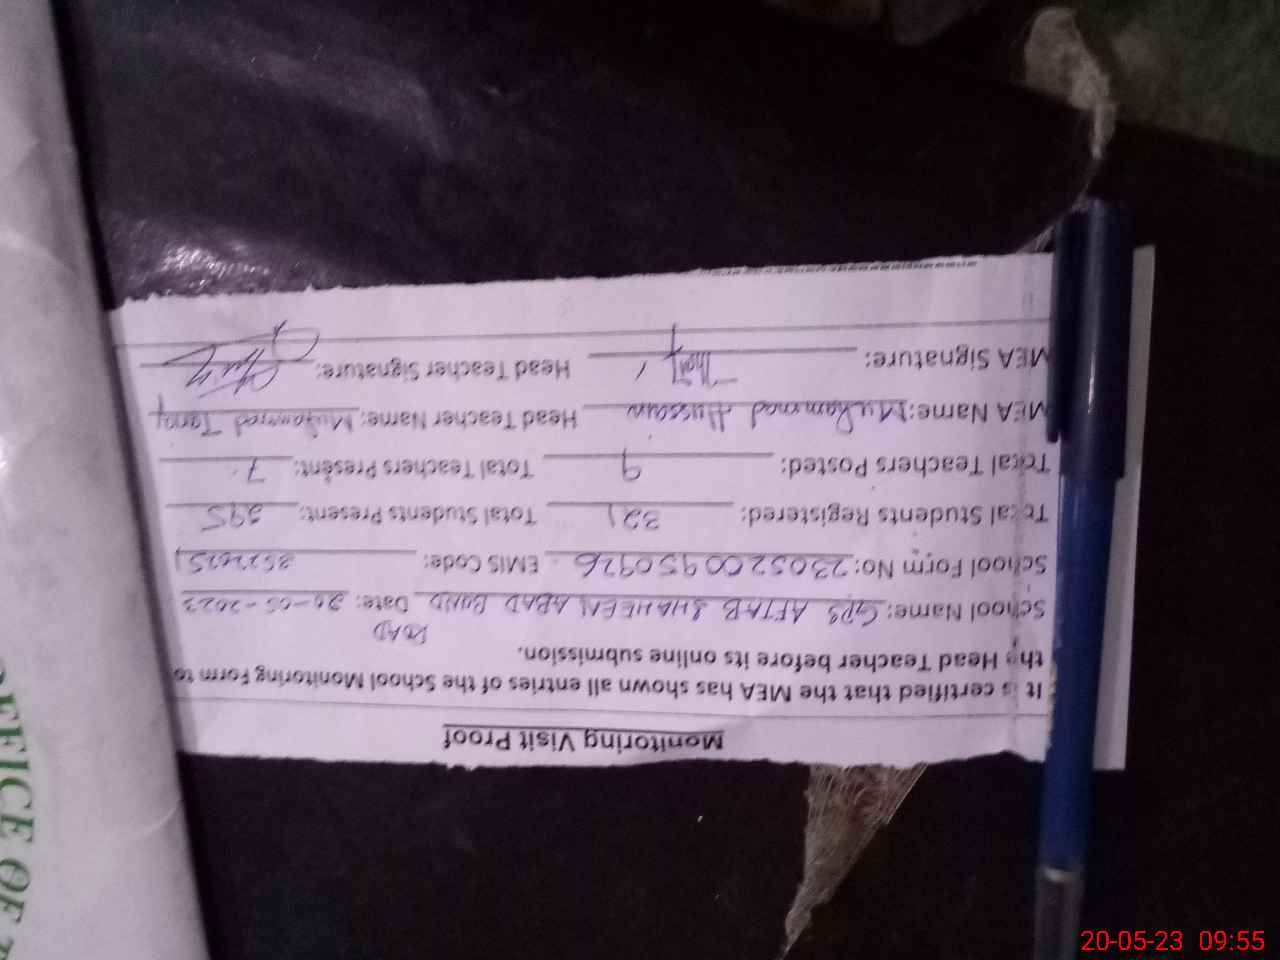 Monitoring Visit Proof
It is certified that the MEA has shown all entries of the School Monitoring Form to
the Head Teacher before its online submission.
ROAD
School Name: GPS AFTAB SHAHEEN ABAD BUND Date: 20-05-2023
School Form No: 2305200950926 EMIS Code: 35220251
Total Students Registered: 321 Total Students Present: 295
Total Teachers Posted: 9 Total Teachers Present: 7
MEA Name: Muhammad Hussain Head Teacher Name: Muhammad Tariq
MEA Signature: Head Teacher Signature:
OFFICE OF
20-05-23 09:55